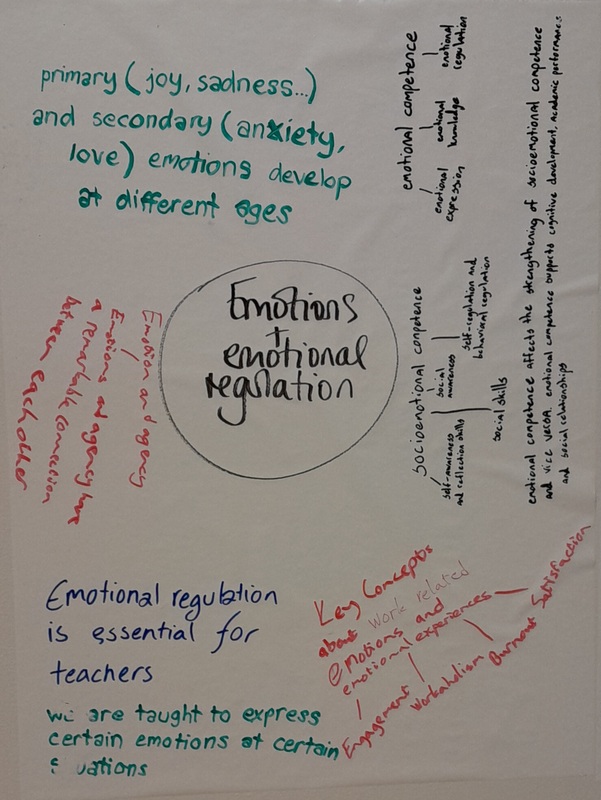 primary (joy, sadness...)
and secondary (anxiety,
love) emotions develop
at different ages
emotional competence
emotional
expression
emotional
knowledge
emotional
regulation
socioemotional competence
self-awareness
and reflection skills
social
awareness
self-regulation and
behavioral regulation
social skills
emotional competence affects the strengthening of socioemotional competence
and vice versa. emotional competence supports cognitive development, academic performance
and social relationships
Emotions
+
emotional
regulation
Emotion and agency
Emotions and agency have
a remarkable connection
between each other
Emotional regulation
is essential for
teachers
we are taught to express
certain emotions at certain
Key Concepts
about work related
emotions and
emotional experiences
Engagement
Workaholism
Burnout
Satisfaction